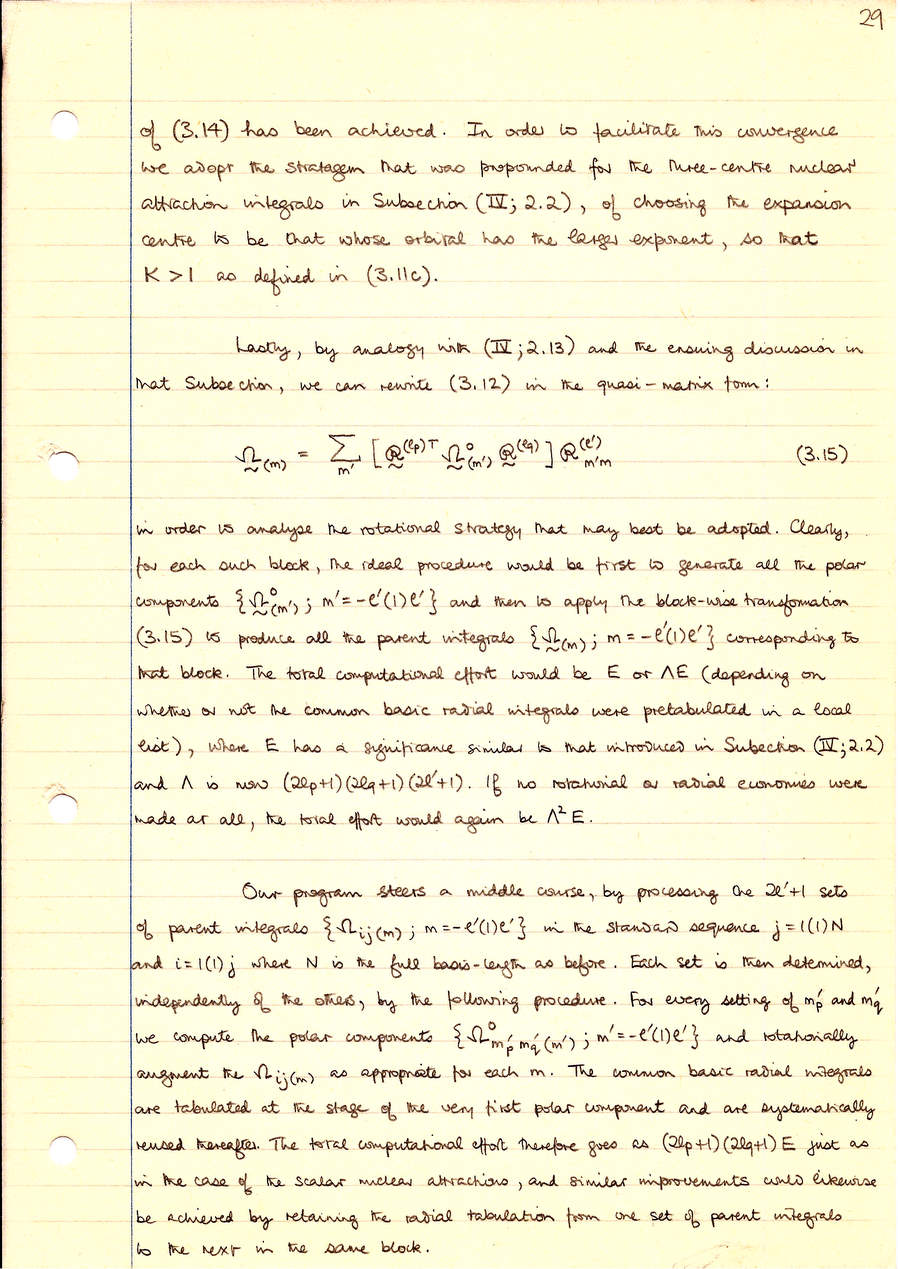 29
of (3.14) has been achieved. In order to facilitate this convergence
we adopt the stratagem that was propounded for the three-centre nuclear
attraction integrals in Subsection (IV; 2.2), of choosing the expansion
centre to be that whose orbital has the larger exponent, so that
K > 1 as defined in (3.11c).
Lastly, by analogy with (IV; 2.13) and the ensuing discussion in
that Subsection, we can rewrite (3.12) in the quasi-matrix form:
Ω(m) = Σ_m' [ R^(lp)T Ω⁰(m') R^(lq) ] R^(l')_m'm (3.15)
in order to analyse the rotational strategy that may best be adopted. Clearly,
for each such block, the ideal procedure would be first to generate all the polar
components {Ω⁰(m') ; m' = -l'(1)l'} and then to apply the block-wise transformation
(3.15) to produce all the parent integrals {Ω(m) ; m = -l'(1)l'} corresponding to
that block. The total computational effort would be E or ΛE (depending on
whether or not the common basic radial integrals were pretabulated in a local
list), where E has a significance similar to that introduced in Subection (IV; 2.2)
and Λ is now (2lp+1)(2lq+1)(2l'+1). If no rotational or radial economies were
made at all, the total effort would again be Λ²E.
Our program steers a middle course, by processing the 2l'+1 sets
of parent integrals {Ωij(m) ; m = -l'(1)l'} in the standard sequence j = 1(1)N
and i = 1(1)j where N is the full basis-length as before. Each set is then determined,
independently of the others, by the following procedure. For every setting of m'p and m'q
we compute the polar components {Ω⁰m'p m'q (m') ; m' = -l'(1)l'} and rotationally
augment the Ωij(m) as appropriate for each m. The common basic radial integrals
are tabulated at the stage of the very first polar component and are systematically
reused thereafter. The total computational effort therefore goes as (2lp+1)(2lq+1)E just as
in the case of the scalar nuclear attractions, and similar improvements could likewise
be achieved by retaining the radial tabulation from one set of parent integrals
to the next in the same block.